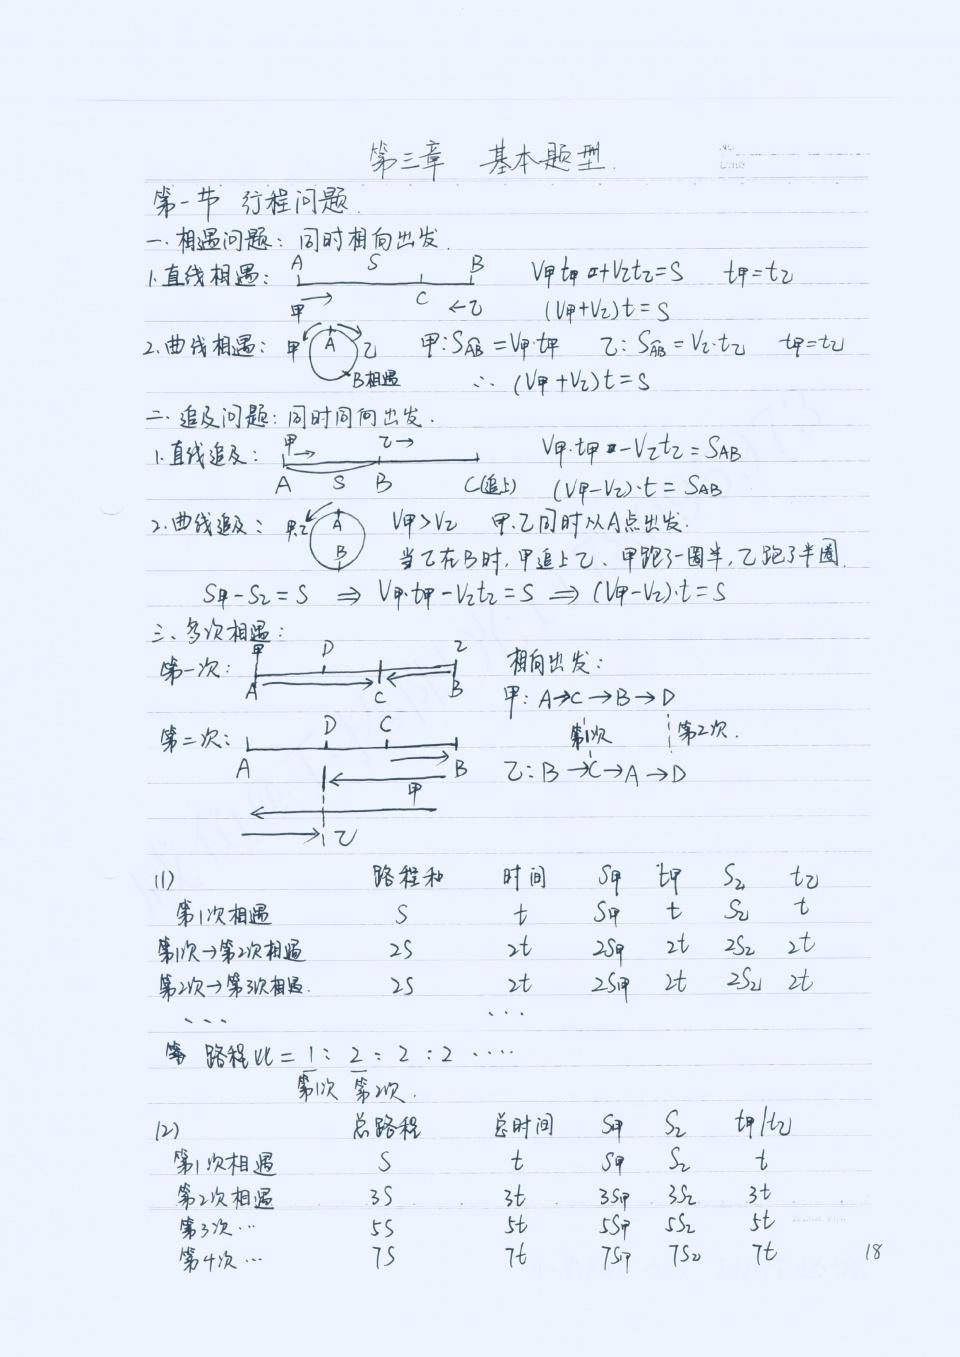 第三章 基本题型.
第一节 行程问题.
一.相遇问题：同时相向出发.
1.直线相遇： A S B V甲t甲+V乙t乙=S t甲=t乙
甲 → C ←乙 (V甲+V乙)t=S
2.曲线相遇： 甲 A 乙 甲:SAB=V甲·t甲 乙:SAB=V乙·t乙 t甲=t乙
B相遇 ∴ (V甲+V乙)t=S
二.追及问题：同时同向出发.
1.直线追及： 甲→ 乙→ V甲·t甲-V乙t乙=SAB
A S B C(追上) (V甲-V乙)·t=SAB
2.曲线追及： 甲.乙 A V甲>V乙 甲.乙同时从A点出发.
B 当乙在B时,甲追上乙、甲跑了一圈半,乙跑了半圈.
S甲-S乙=S ⇒ V甲·t甲-V乙t乙=S ⇒ (V甲-V乙)·t=S
三、多次相遇：
第一次： 甲 D 乙 相向出发：
A C B 甲：A→C→B→D
第二次： D C 第1次 第2次.
A B 乙：B→C→A→D
甲
乙
(1) 路程和 时间 S甲 t甲 S乙 t乙
第1次相遇 S t S甲 t S乙 t
第1次→第2次相遇 2S 2t 2S甲 2t 2S乙 2t
第2次→第3次相遇. 2S 2t 2S甲 2t 2S乙 2t
、、、 . . .
路程比=1:2:2:2····
第1次 第2次.
(2) 总路程 总时间 S甲 S乙 t甲/t乙
第1次相遇 S t S甲 S乙 t
第2次相遇 3S 3t 3S甲 3S乙 3t
第3次… 5S 5t 5S甲 5S乙 5t
第4次… 7S 7t 7S甲 7S乙 7t
18